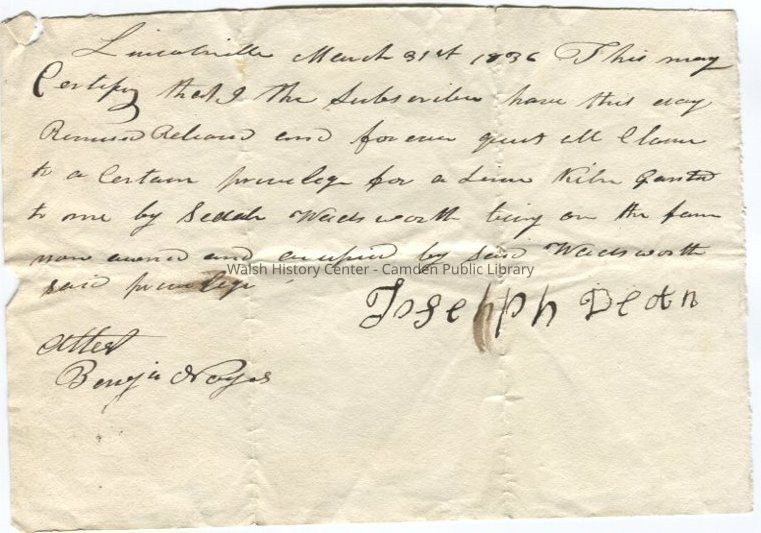 Lincolnville March 31st 1836 This may
Certify that I the Subscriber have this day
Remised Released and forever quit all Claim
to a Certain privilege for a Lime Kiln Granted
to me by Sedate Wadsworth being on the farm
now owned and occupied by said Wadsworth
said privilege
Walsh History Center - Camden Public Library
Joseph Dean
Attest
Benja Noyes